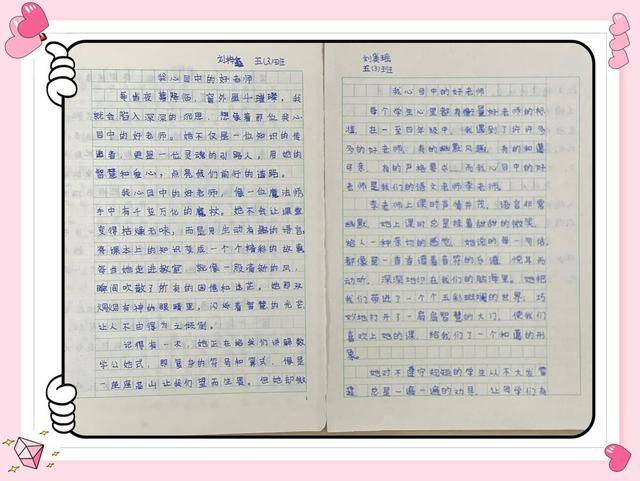 五(3)班
我心目中的好老师
每当夜幕降临，窗外星斗璀璨，我
就会陷入深深的沉思，想象着那位我心
目中的好老师。她不仅是一位知识的传
递者，更是一位灵魂的引路人，用她的
智慧和爱心，点亮我们前行的道路。
我心目中的好老师，像一位魔法师，
手中有千变万化的魔杖。她不会让课堂
变得枯燥无味，而是用生动有趣的语言，
将课本上的知识变成一个个精彩的故事，
每当她走进教室，就像一股清新的风，
瞬间吹散了所有的困倦和迷茫。她那双
炯炯有神的眼睛里，闪烁着智慧的光芒，
让人不由得为之倾倒。
记得有一次，她正在给我们讲解数
学公式，那复杂的符号和算式，像是
一座座高山让我们望而生畏。但她却微
五(3)班
我心目中的好老师
每个学生心里都有衡量好老师的标
准，在一至四年级中，我遇到了许许多
多的好老师，有的幽默风趣，有的和蔼
可亲，有的严格要求，而我心目中的好
老师是我们的语文老师李老师。
李老师上课时声情并茂，语言非常
幽默，她上课时总是挂着甜甜的微笑，
给人一种亲切的感觉，她说的每一句话，
都像是一首首谱着音符的乐谱，悦耳而
动听，深深地印在我们的脑海里。她把
我们带进了一个个五彩斑斓的世界，巧
妙地打开了一扇扇智慧的大门，使我们
喜欢上她的课，给我们了一个和蔼的形
象。
她对不遵守规矩的学生从不大发雷
霆，总是一遍一遍的劝导，让同学们为